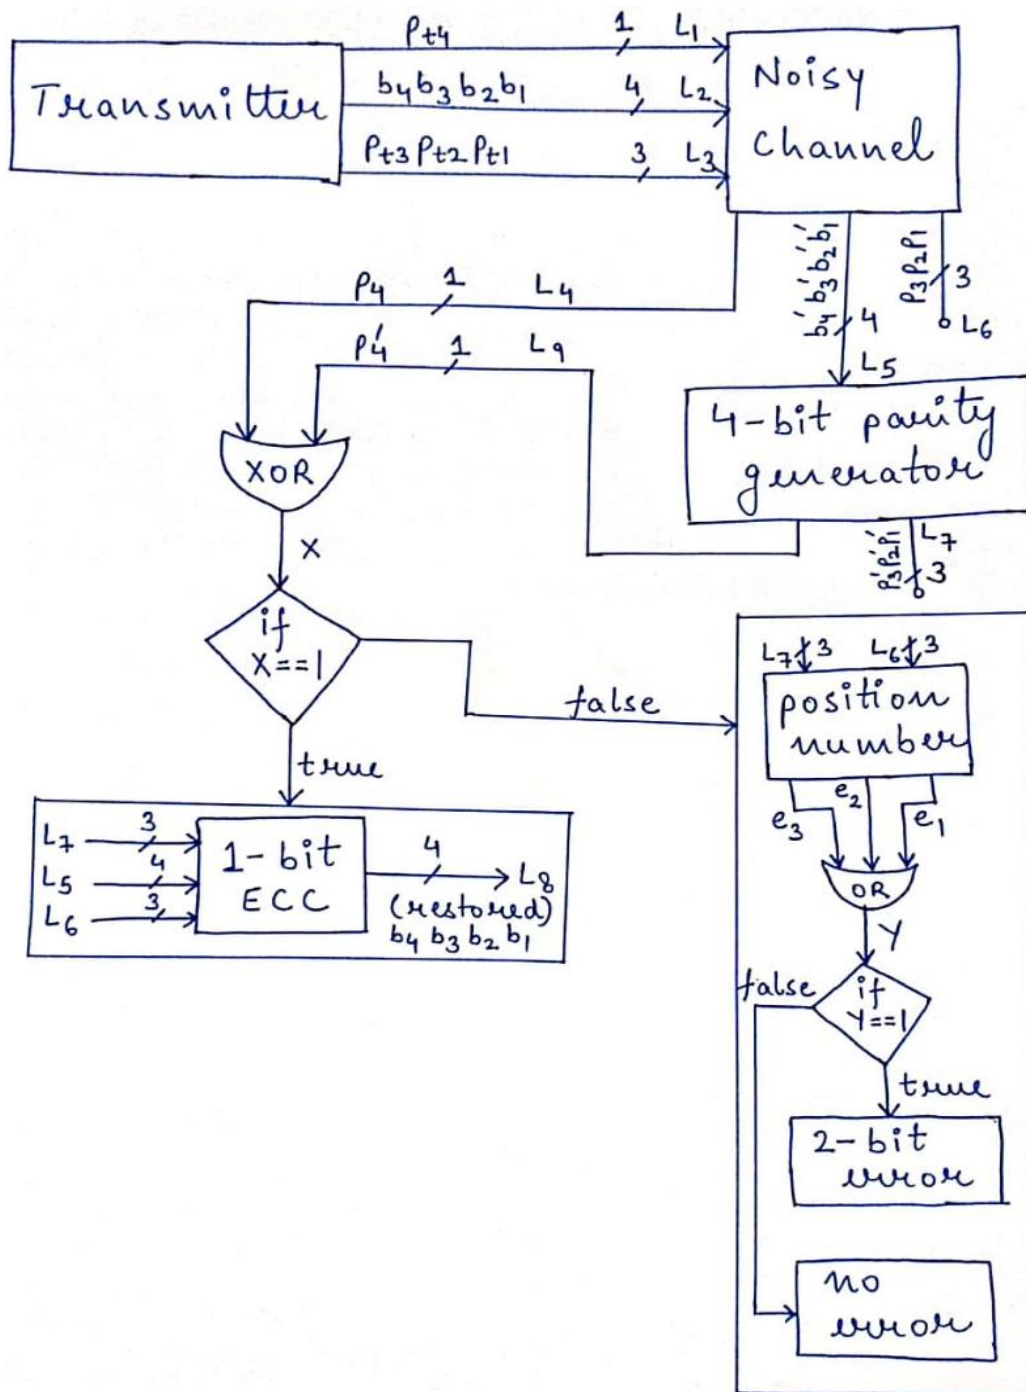 Transmitter
Pt4 1 L1
b4b3b2b1 4 L2
Pt3 Pt2 Pt1 3 L3
Noisy
channel
P4 1 L4
P4' 1 L9
b4' b3' b2' b1'
4
L5
P3P2P1
3
L6
4-bit parity
generator
P3'P2'P1'
L7
3
XOR
X
if
X==1
false
true
L7 3
L5 4
L6 3
1-bit
ECC
4
L8
(restored)
b4 b3 b2 b1
L7 3 L6 3
position
number
e3 e2 e1
OR
Y
if
Y==1
false
true
2-bit
error
no
error